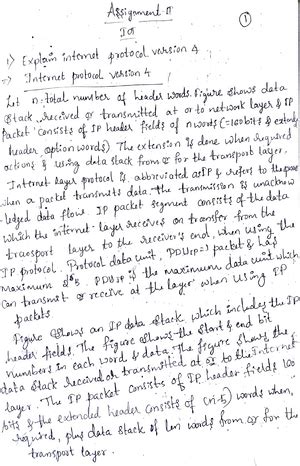 Assignment II
IOT
1
1) Explain internet protocol version 4
→ Internet protocol version 4
Let n = total number of header words. Figure shows data
stack received or transmitted at or to network layer & IP
Packet consists of IP header fields of n words (=160 bits & extend
header option words) The extension is done when required
actions & using data stack from or for the transport layer.
Internet layer protocol is abbreviated as IP & refers to the process
when a packet transmits data. The transmission is unacknow
ledged data flow. IP packet segment consists of the data
which the internet layer receives on transfer from the
transport layer to the receiver's end, when using the
IP protocol. Protocol data unit, PDU IP packet & has
maximum PDU IP is the maximum data unit which
can transmit or receive at the layer when using IP
packets.
Figure shows an IP data stack which includes the IP
header fields. The figure shows the start & end bit
numbers in each word & data. The figure shows the
data stack received or transmitted at or to the Internet
layer. The IP packet consists of IP header fields 160
bits & the extended header consists of (n-5) words when
required, plus data stack of len words from or for the
transport layer.